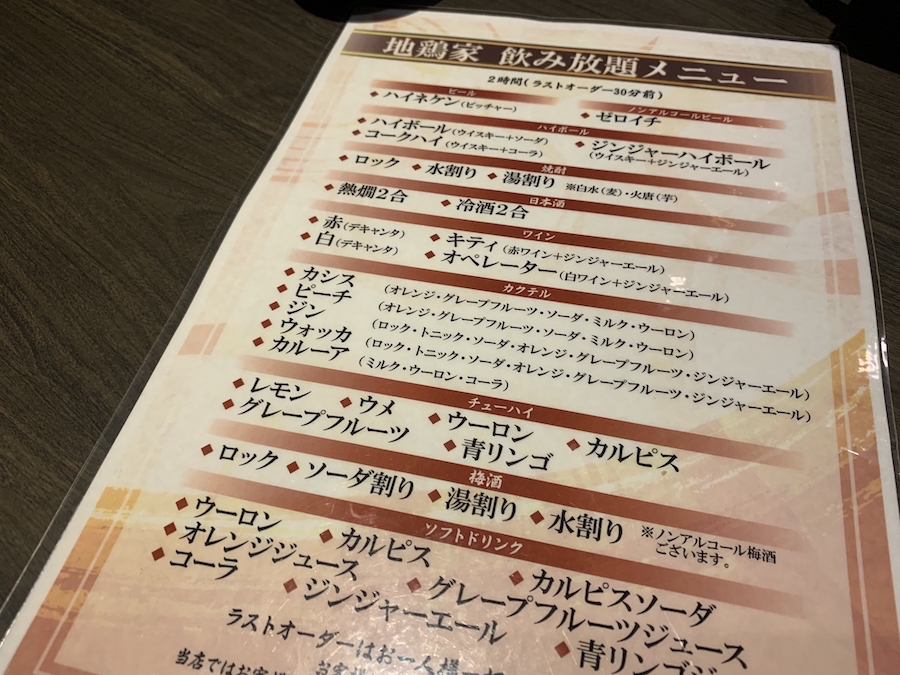 地鶏家 飲み放題メニュー
2時間(ラストオーダー30分前)
ビール
◆ハイネケン(ピッチャー)
ノンアルコールビール
◆ゼロイチ
ハイボール
◆ハイボール(ウイスキー+ソーダ)
◆コークハイ(ウイスキー+コーラ)
◆ジンジャーハイボール
(ウイスキー+ジンジャーエール)
焼酎
◆ロック ◆水割り ◆湯割り ※白水(麦)・火唐(芋)
日本酒
◆熱燗2合 ◆冷酒2合
ワイン
◆赤(デキャンタ) ◆キティ(赤ワイン+ジンジャーエール)
◆白(デキャンタ) ◆オペレーター(白ワイン+ジンジャーエール)
カクテル
◆カシス (オレンジ・グレープフルーツ・ソーダ・ミルク・ウーロン)
◆ピーチ (オレンジ・グレープフルーツ・ソーダ・ミルク・ウーロン)
◆ジン (ロック・トニック・ソーダ・オレンジ・グレープフルーツ・ジンジャーエール)
◆ウォッカ (ロック・トニック・ソーダ・オレンジ・グレープフルーツ・ジンジャーエール)
◆カルーア (ミルク・ウーロン・コーラ)
チューハイ
◆レモン ◆ウメ ◆ウーロン ◆カルピス
◆グレープフルーツ ◆青リンゴ
梅酒
◆ロック ◆ソーダ割り ◆湯割り ◆水割り ※ノンアルコール梅酒
ございます。
ソフトドリンク
◆ウーロン ◆カルピス ◆カルピスソーダ
◆オレンジジュース ◆グレープフルーツジュース
◆コーラ ◆ジンジャーエール ◆青リンゴジ
ラストオーダーはお一人様一
当店ではお客